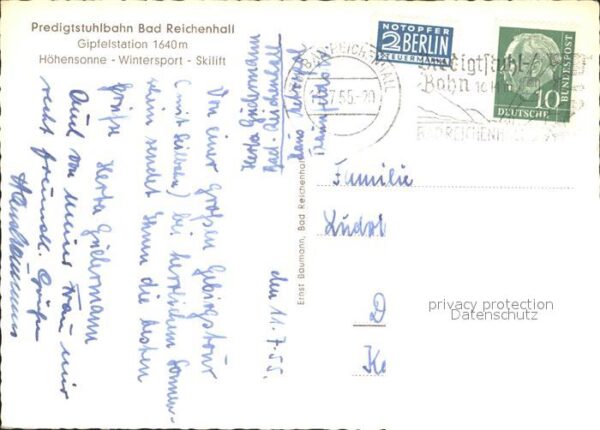 Predigtstuhlbahn Bad Reichenhall
Gipfelstation 1640 m
Höhensonne - Wintersport - Skilift
NOTOPFER
2 BERLIN
STEUERMARKE
BAD REICHENHALL
7.55.-20
Predigtstuhl-
Bahn
BAD REICHENHALL
10
DEUTSCHE
BUNDESPOST
Herta Gudermann
Bad-Reichenhall
Haus
den 11.7.55.
Von einer großen Gebirgstour
(mit Seilbahn) bei herrlichem Sonnen-
schein sendet Ihnen die besten
Grüße Herta Gudermann
Auch von meiner Frau und
recht freundl. Grüße
Ernst Baumann, Bad Reichenhall
Familie
Ludol
D
Ke
privacy protection
Datenschutz